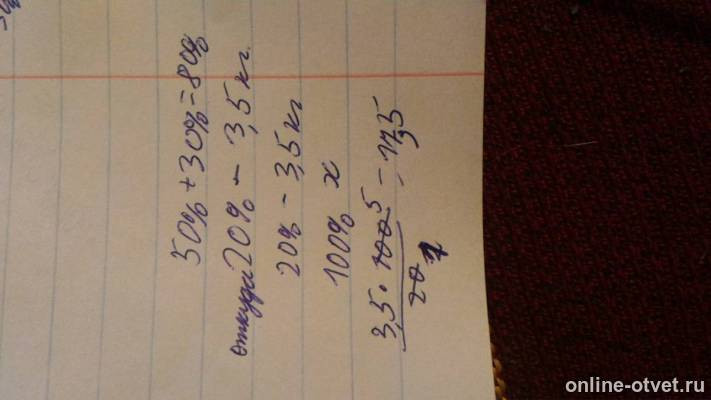 50% + 30% = 80%
откуда 20% - 3,5 кг.
20% - 3,5 кг
100% x
3,5 · 100 5 - 17,5
20 1
online-otvet.ru